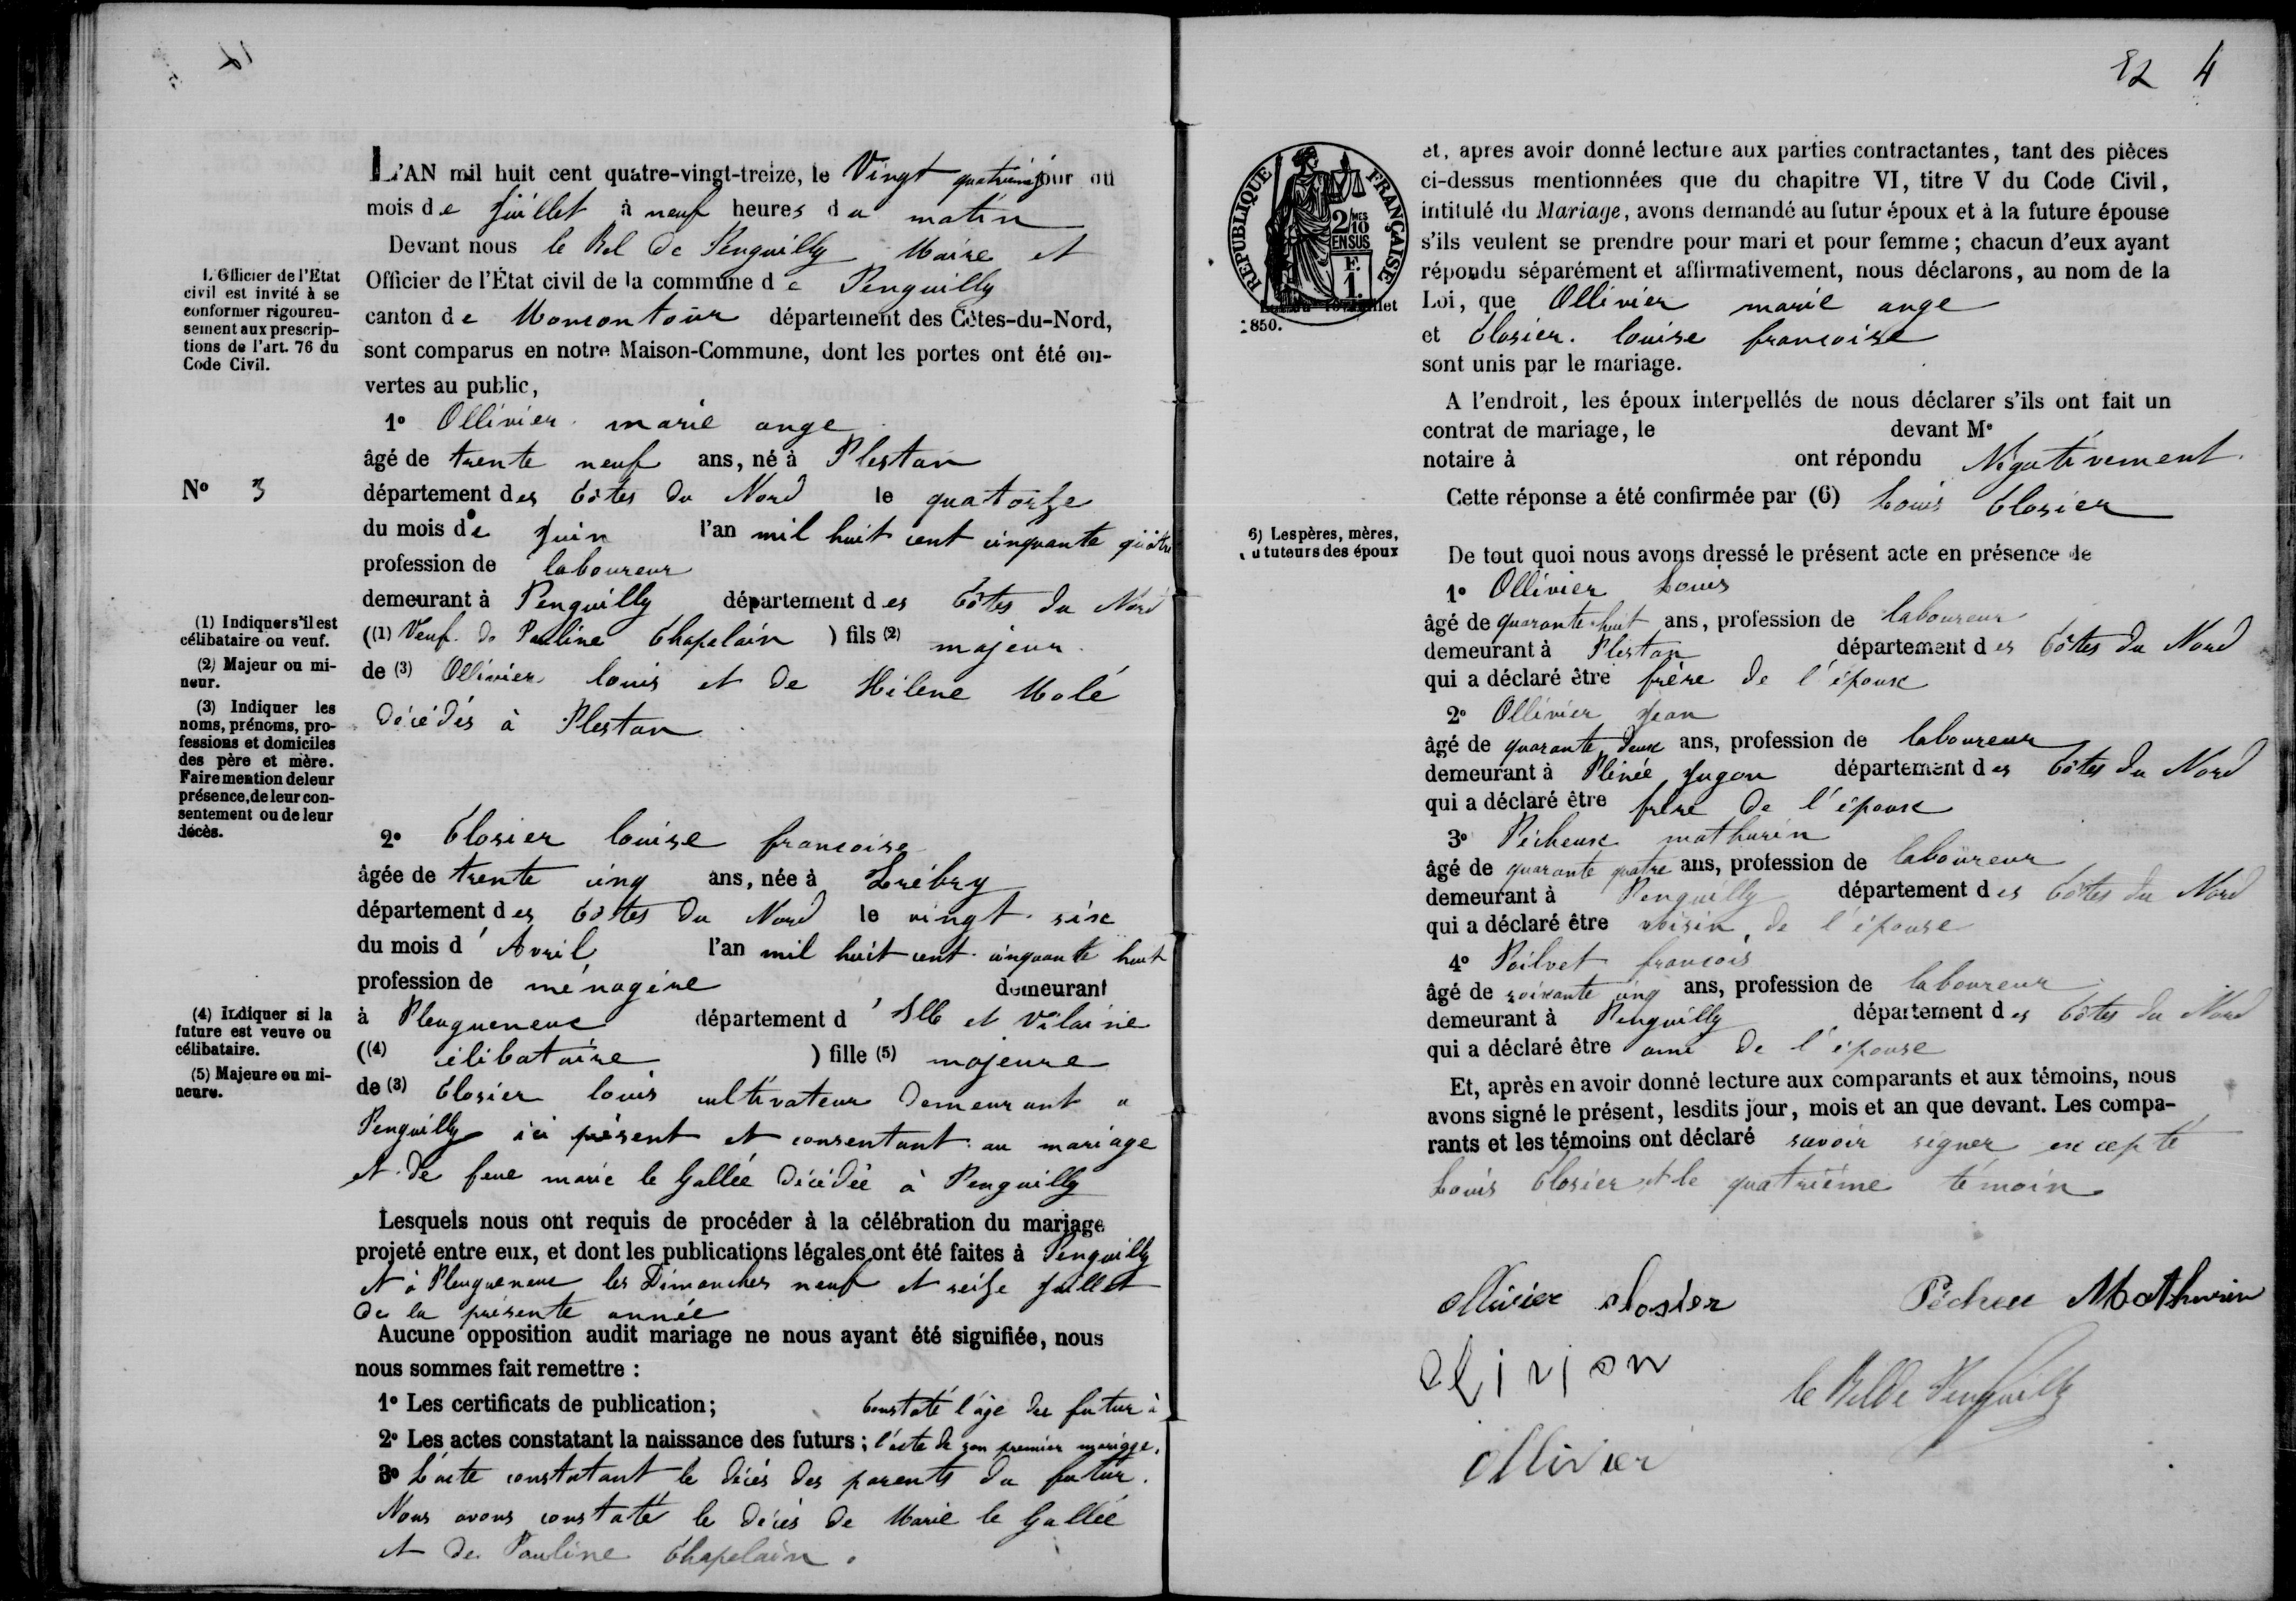 L'AN mil huit cent quatre-vingt-treize, le Vingt quatrième jour du
mois de Juillet à neuf heures du matin
Devant nous le Bel de Penguilly Maire et
Officier de l'État civil de la commune de Penguilly
canton de Moncontour département des Côtes-du-Nord,
sont comparus en notre Maison-Commune, dont les portes ont été ou-
vertes au public,
1º Ollivier marie ange
âgé de trente neuf ans, né à Plestan
département des Côtes du Nord le quatorze
du mois de Juin l'an mil huit cent cinquante quatre
profession de laboureur
demeurant à Penguilly département des Côtes du Nord
((1) Veuf de Pauline Chapelain ) fils (2) majeur
de (3) Ollivier louis et de Hélene Molé
décédés à Plestan
2º Closier louise francoise
âgée de trente cinq ans, née à Trébry
département des Côtes du Nord le vingt six
du mois d'Avril l'an mil huit cent cinquante huit
profession de ménagère demeurant
à Pleugueneuc département d'Ille et Vilaine
((4) célibataire ) fille (5) majeure
de (3) Closier louis cultivateur demeurant a
Penguilly ici présent et consentant au mariage
et de feue marie le Gallée décédée à Penguilly
Lesquels nous ont requis de procéder à la célébration du mariage
projeté entre eux, et dont les publications légales ont été faites à Penguilly
et à Pleugueneuc les Dimanches neuf et seize Juillet
de la présente année
Aucune opposition audit mariage ne nous ayant été signifiée, nous
nous sommes fait remettre :
1º Les certificats de publication; Constaté l'âge du futur à
2º Les actes constatant la naissance des futurs; l'acte de son premier mariage.
3º L'acte constatant le décès des parents du futur.
Nous avons constaté le décès de Marie le Gallée
et de Pauline Chapelain.
L'Officier de l'Etat
civil est invité à se
conformer rigoureu-
sement aux prescrip-
tions de l'art. 76 du
Code Civil.
Nº 3
(1) Indiquer s'il est
célibataire ou veuf.
(2) Majeur ou mi-
neur.
(3) Indiquer les
noms, prénoms, pro-
fessions et domiciles
des père et mère.
Faire mention de leur
présence, de leur con-
sentement ou de leur
décès.
(4) Indiquer si la
future est veuve ou
célibataire.
(5) Majeure ou mi-
neure.
4
RÉPUBLIQUE FRANÇAISE
2/10 MES
EN SUS
F.
1.
1850.
et, apres avoir donné lecture aux parties contractantes, tant des pièces
ci-dessus mentionnées que du chapitre VI, titre V du Code Civil,
intitulé du Mariage, avons demandé au futur époux et à la future épouse
s'ils veulent se prendre pour mari et pour femme; chacun d'eux ayant
répondu séparément et affirmativement, nous déclarons, au nom de la
Loi, que Ollivier marie ange
et Closier louise francoise
sont unis par le mariage.
A l'endroit, les époux interpellés de nous déclarer s'ils ont fait un
contrat de mariage, le devant Me
notaire à ont répondu Négativement.
Cette réponse a été confirmée par (6) Louis Closier
6) Les pères, mères,
ou tuteurs des époux
De tout quoi nous avons dressé le présent acte en présence de
1º Ollivier Louis
âgé de quarante huit ans, profession de laboureur
demeurant à Plestan département des Côtes du Nord
qui a déclaré être frère de l'époux
2º Ollivier Jean
âgé de quarante deux ans, profession de laboureur
demeurant à Plénée Jugon département des Côtes du Nord
qui a déclaré être frère de l'époux
3º Pécheux mathurin
âgé de quarante quatre ans, profession de laboureur
demeurant à Penguilly département des Côtes du Nord
qui a déclaré être voisin de l'épouse
4º Poilvet francois
âgé de soixante cinq ans, profession de laboureur
demeurant à Penguilly département des Côtes du Nord
qui a déclaré être ami de l'épouse
Et, après en avoir donné lecture aux comparants et aux témoins, nous
avons signé le présent, lesdits jour, mois et an que devant. Les compa-
rants et les témoins ont déclaré savoir signer excepté
Louis Closier et le quatrième témoin
ollivier closier Pécheu Mathurin
le Bel de Penguilly
ollivier